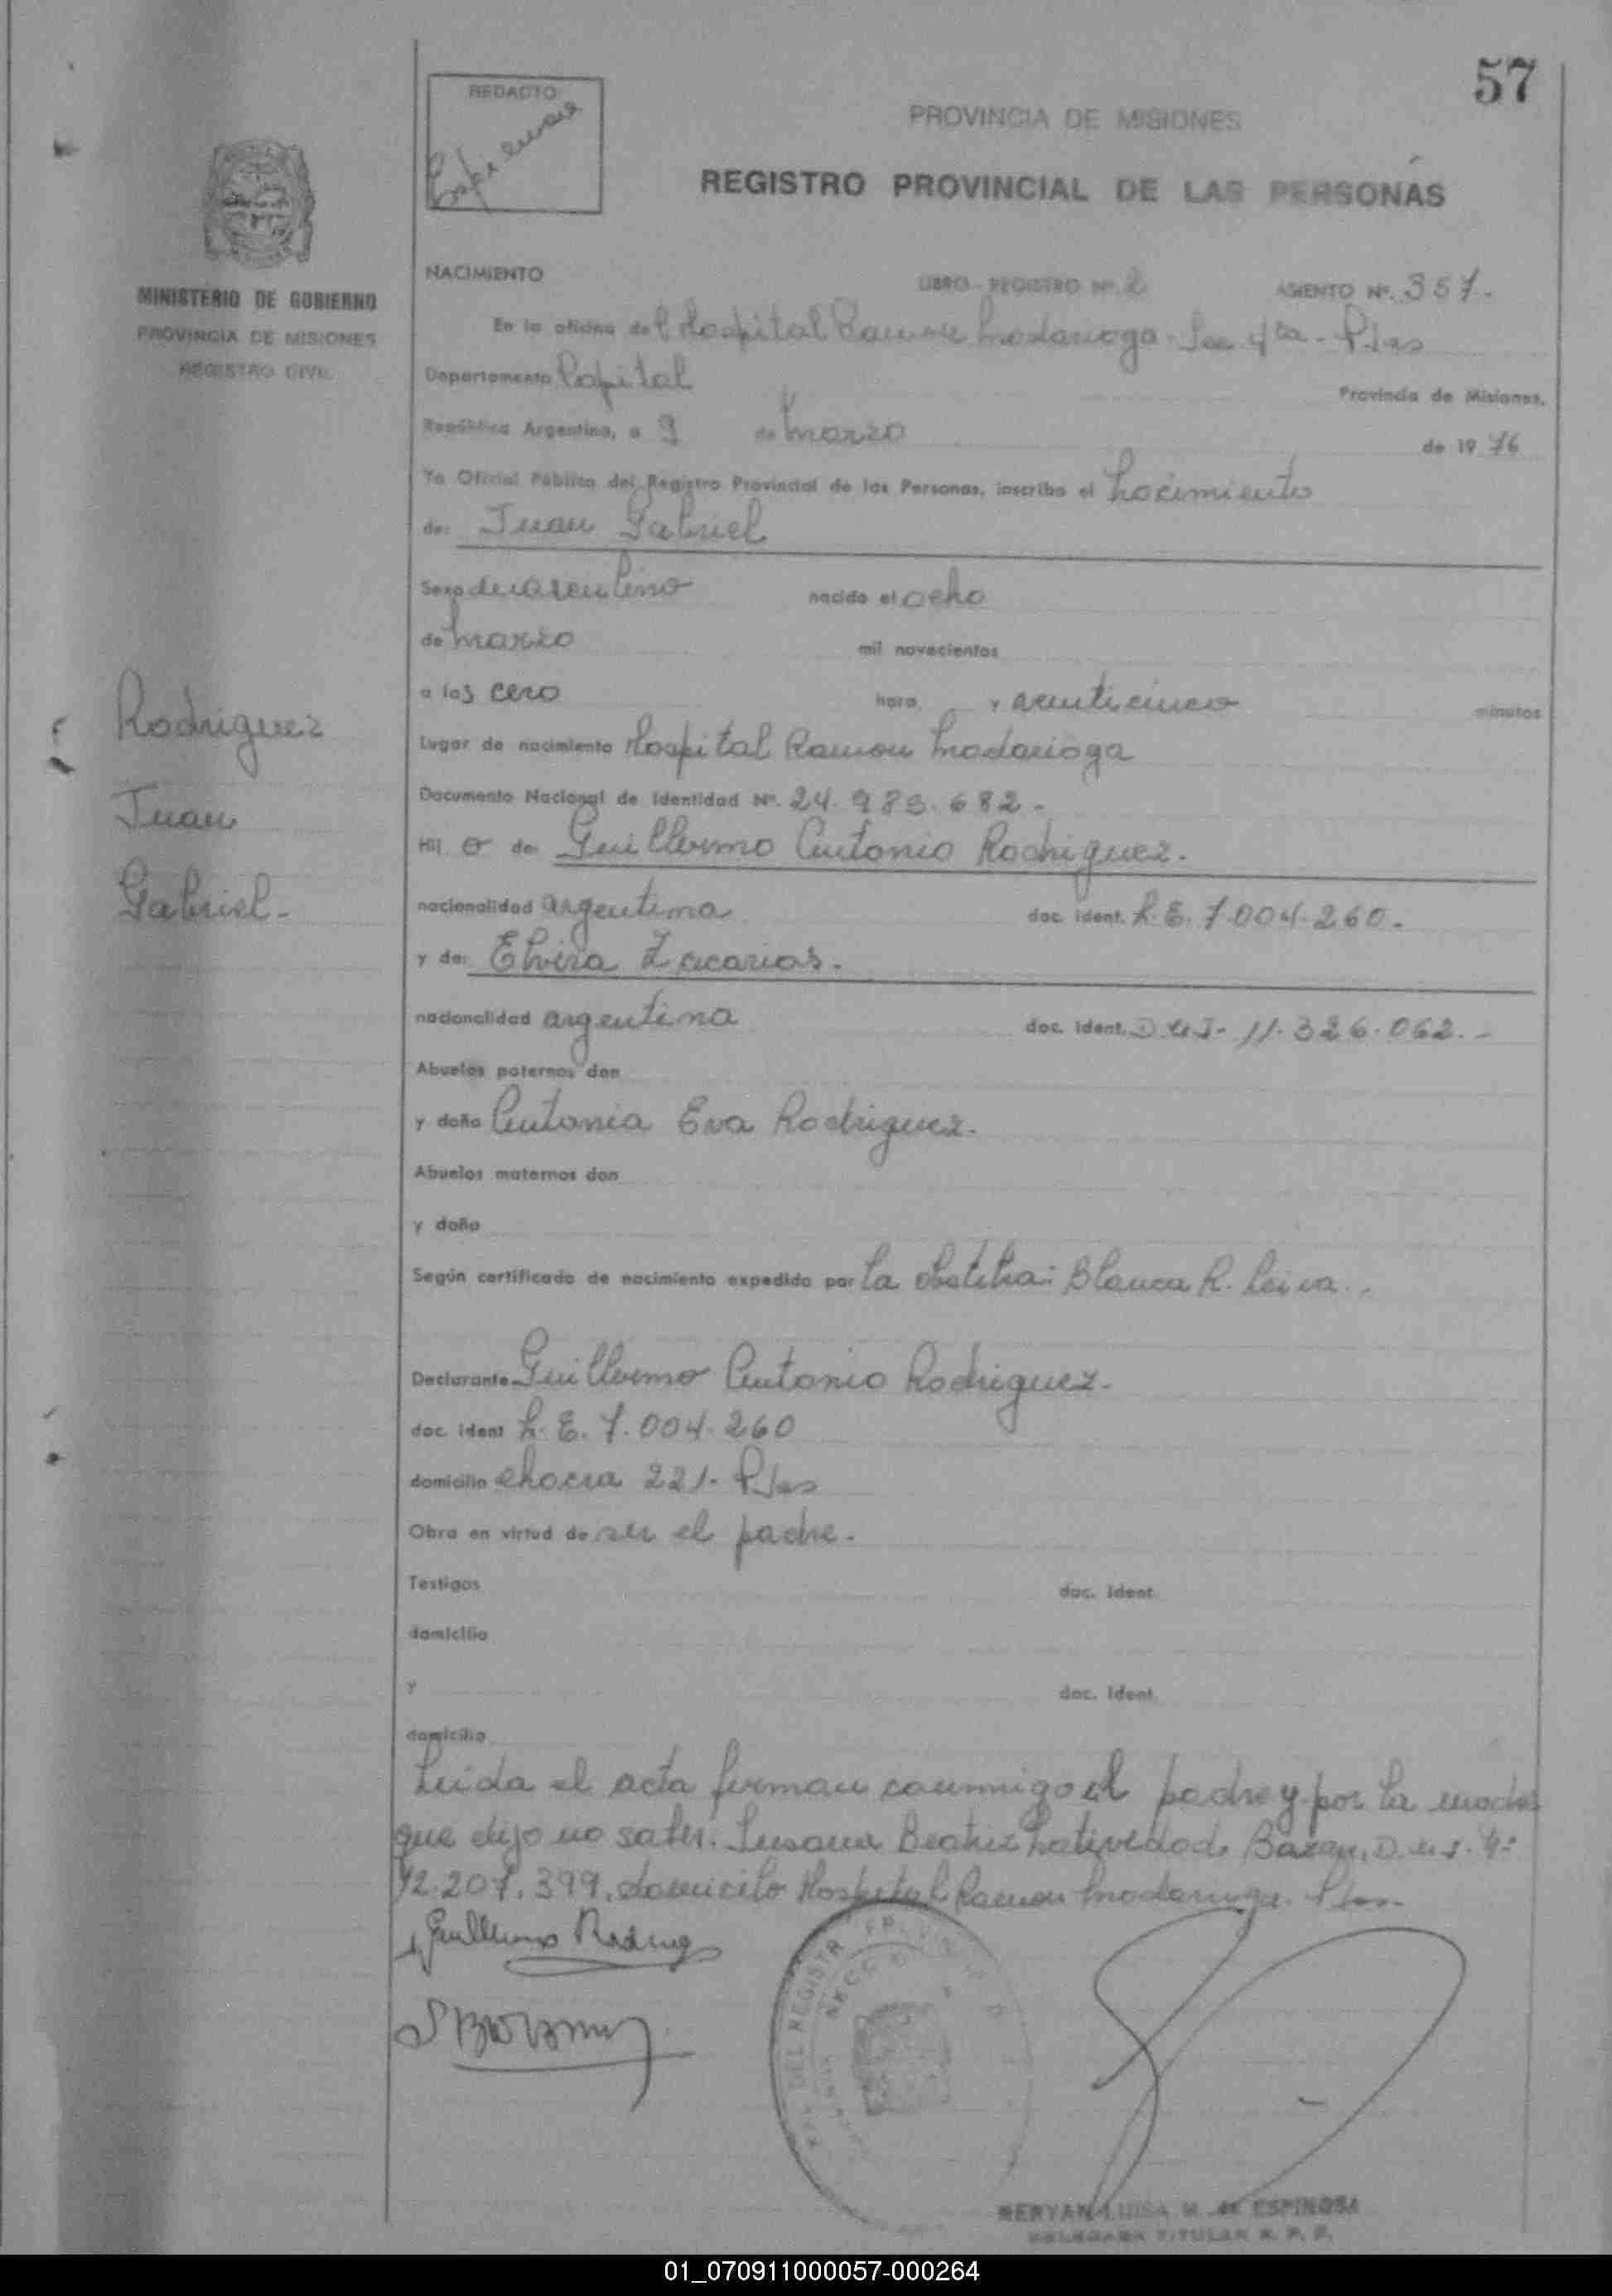 57
REDACTO
PROVINCIA DE MISIONES
REGISTRO PROVINCIAL DE LAS PERSONAS
MINISTERIO DE GOBIERNO
PROVINCIA DE MISIONES
REGISTRO CIVIL
NACIMIENTO LIBRO - REGISTRO Nº. 2 ASIENTO Nº. 357.-
En la oficina del Hospital Ramon Madariaga - Sec 4ta - Pdas
Departamento Capital Provincia de Misiones,
República Argentina, a 9 de Marzo de 1976
Yo Oficial Público del Registro Provincial de las Personas, inscribo el Nacimiento
de: Juan Gabriel
Sexo masculino nacido el ocho
de Marzo mil novecientos
a las cero hora y veinticinco minutos
Lugar de nacimiento Hospital Ramon Madariaga
Documento Nacional de Identidad Nº. 24.985.682.-
Hij o de: Guillermo Antonio Rodriguez.
nacionalidad argentina doc. ident. L.E. 7.004.260.-
y de: Elvira Zacarias.
nacionalidad argentina doc. ident. D.N.I. 11.326.062.-
Abuelos paternos don
y doña Antonia Eva Rodriguez.
Abuelos maternos don
y doña
Según certificado de nacimiento expedido por la obstetra: Blanca R. Leiva.
Declarante Guillermo Antonio Rodriguez.
doc. ident L.E. 7.004.260
domicilio chacra 221- Pdas
Obra en virtud de ser el padre.
Testigos doc. ident.
domicilio
y doc. ident.
domicilio
Leida el acta firman conmigo el padre y por la madre
que dijo no saber. Susana Beatriz Natividad Bazan, D.N.I. Nº
12.207.399, domicilio Hospital Ramon Madariaga. Pdas.
Rodriguez
Juan
Gabriel.-
Guillermo Rodrig
DEL REGISTR
SECC
LUISA M. de ESPINOSA
DELEGADA TITULAR R. P. P.
01_070911000057-000264